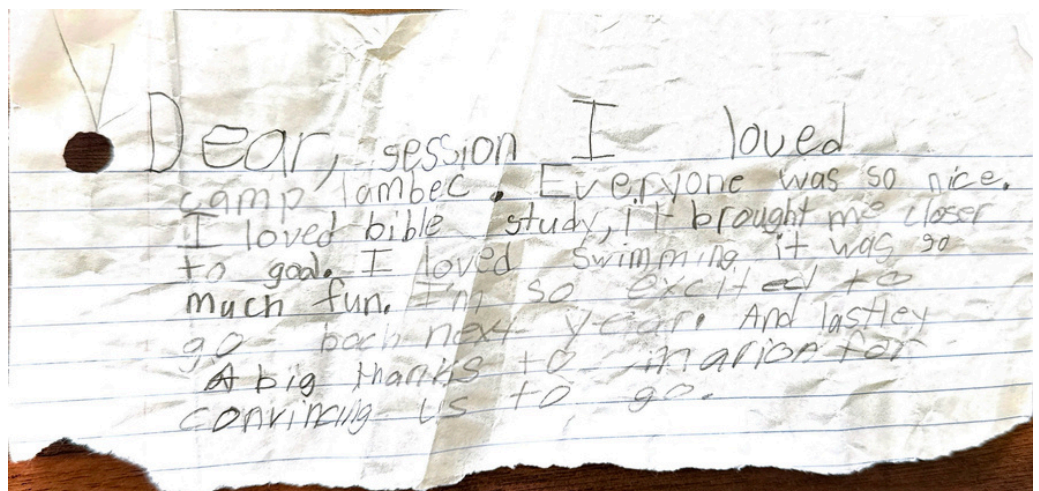 Dear, session I loved
camp lambec. Everyone was so nice.
I loved bible study, it brought me closer
to god. I loved swimming it was so
much fun. I'm so excited to
go back next year. And lastley
A big thanks to marion for
convincing us to go.